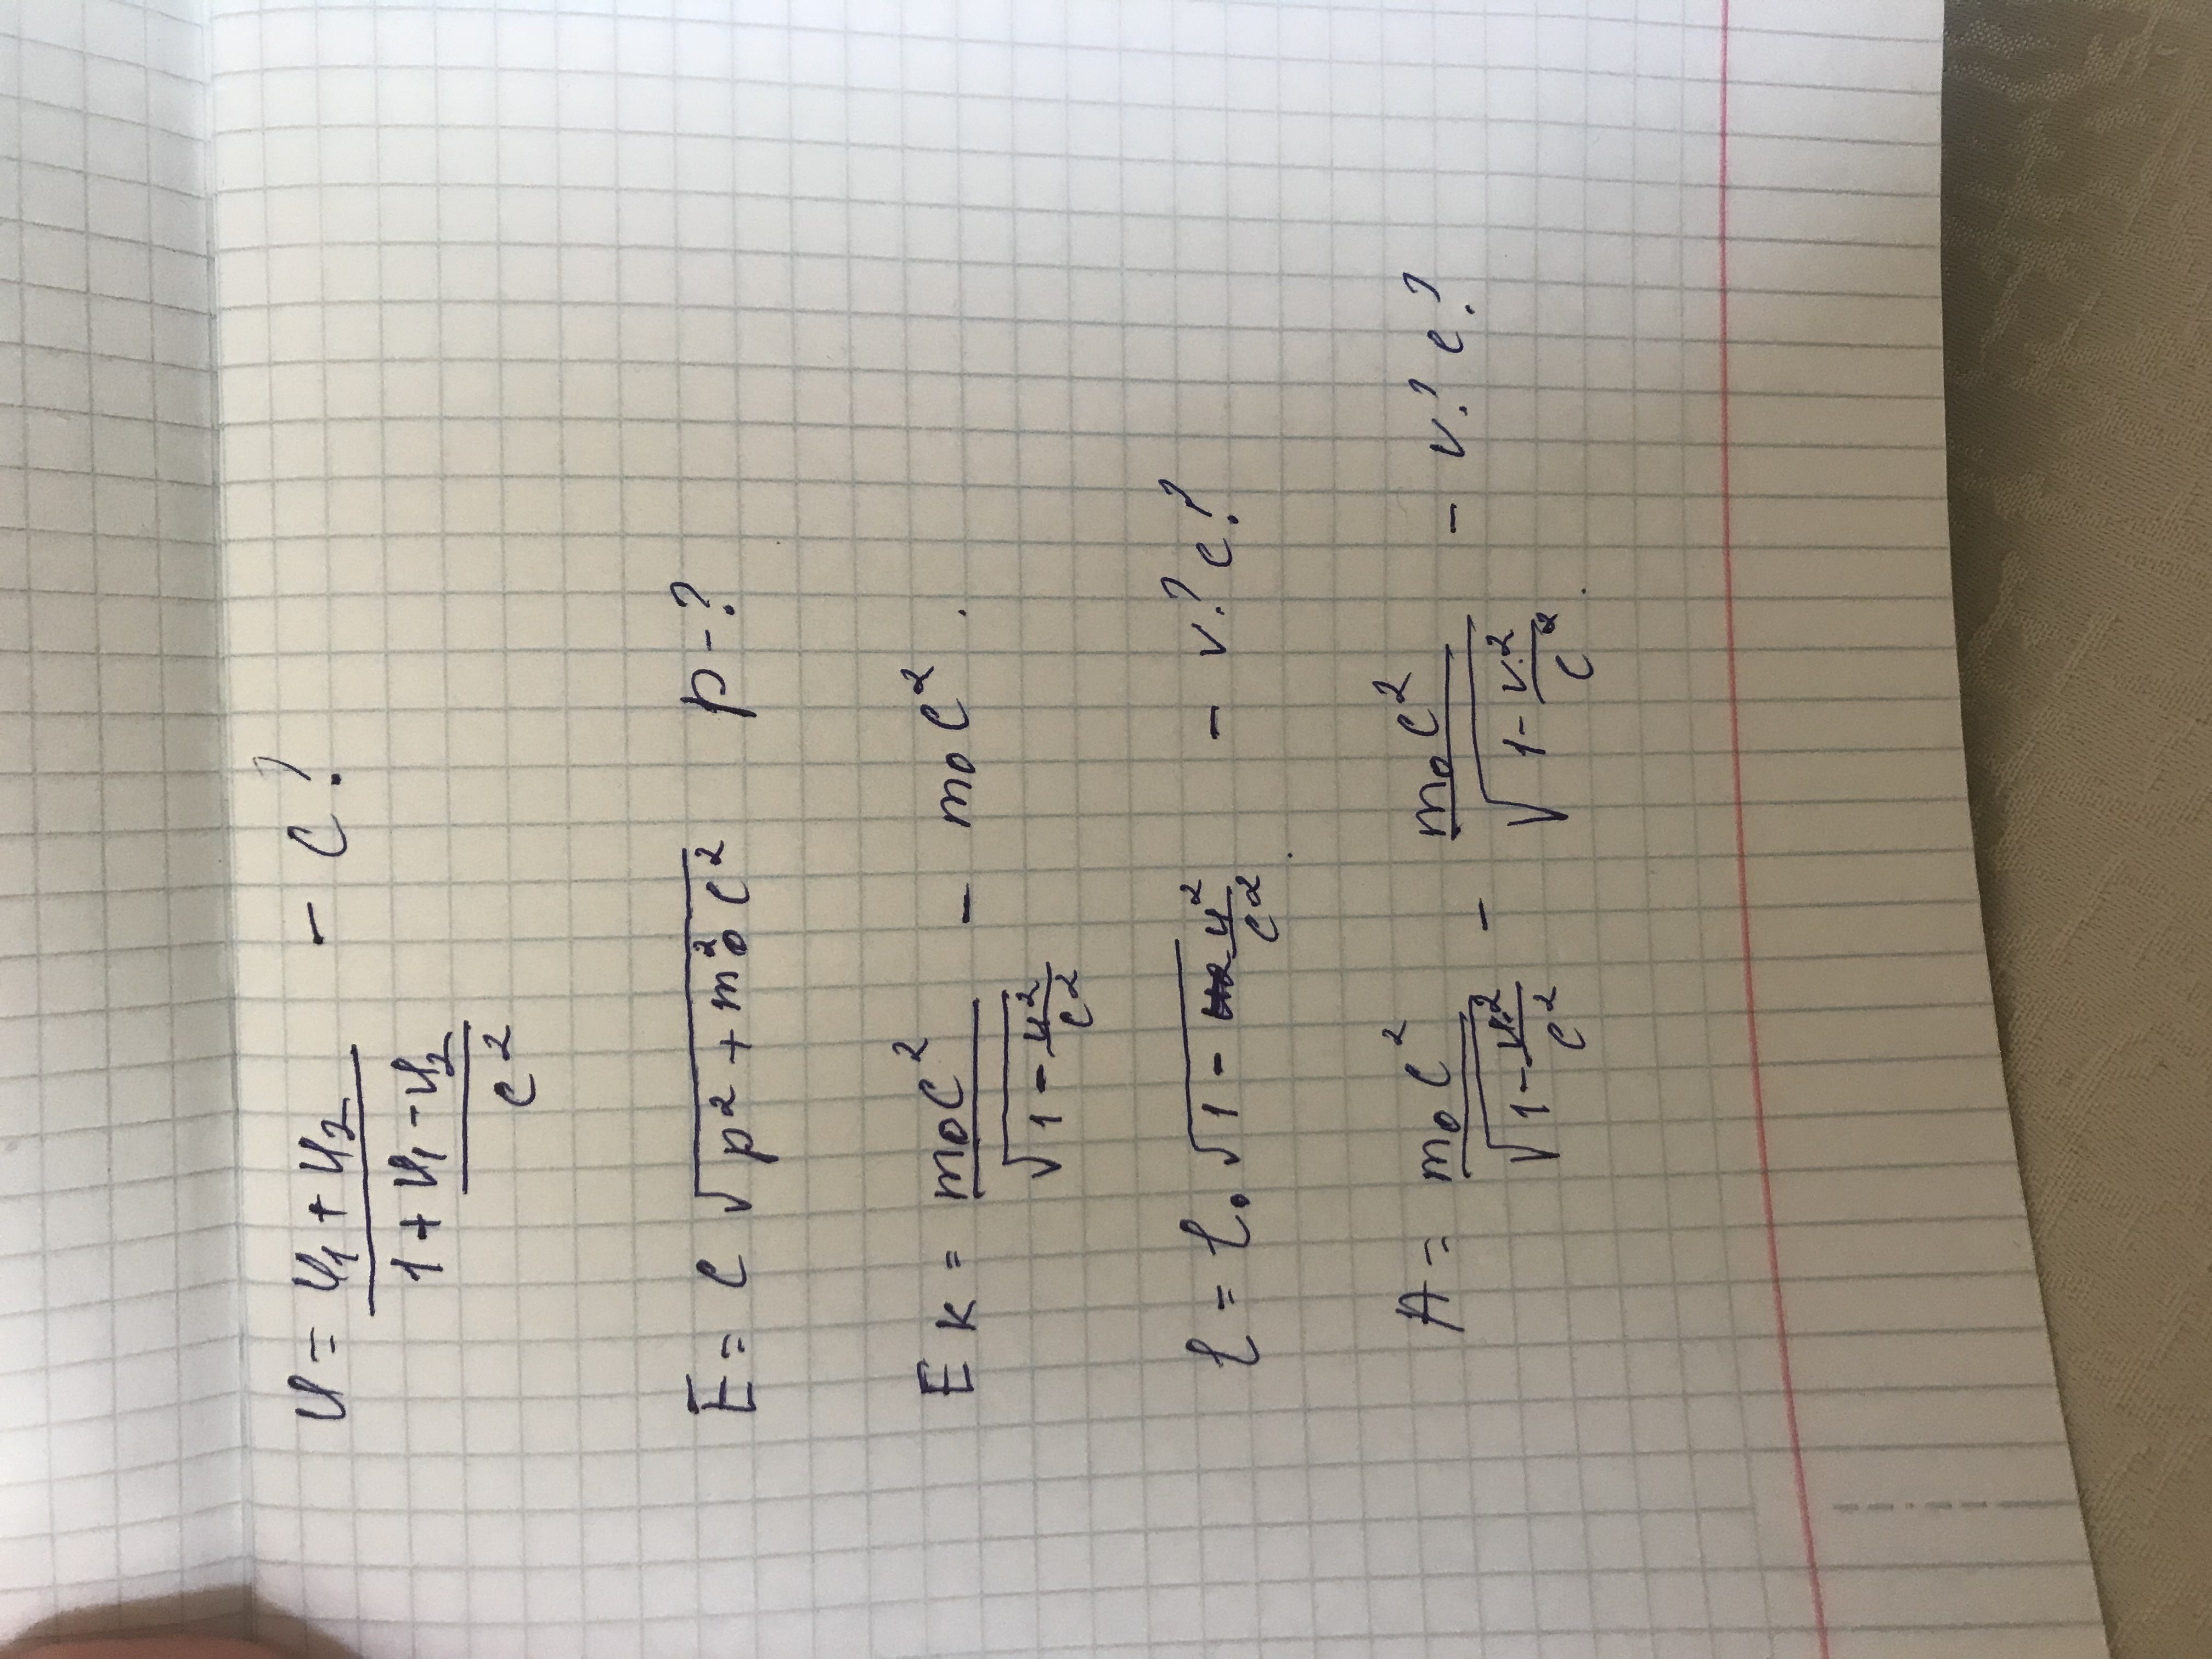 υ = υ₁ + υ₂ / 1 + υ₁ - υ₂ / c² - c?
E = c √p² + m₀² c² p - ?
Eк = m₀c² / √1 - υ² / c² - m₀c²
l = l₀ √1 - υ² / c² - v? c?
A = m₀c² / √1 - υ² / c² - m₀c² / √1 - v² / c² - v? c?